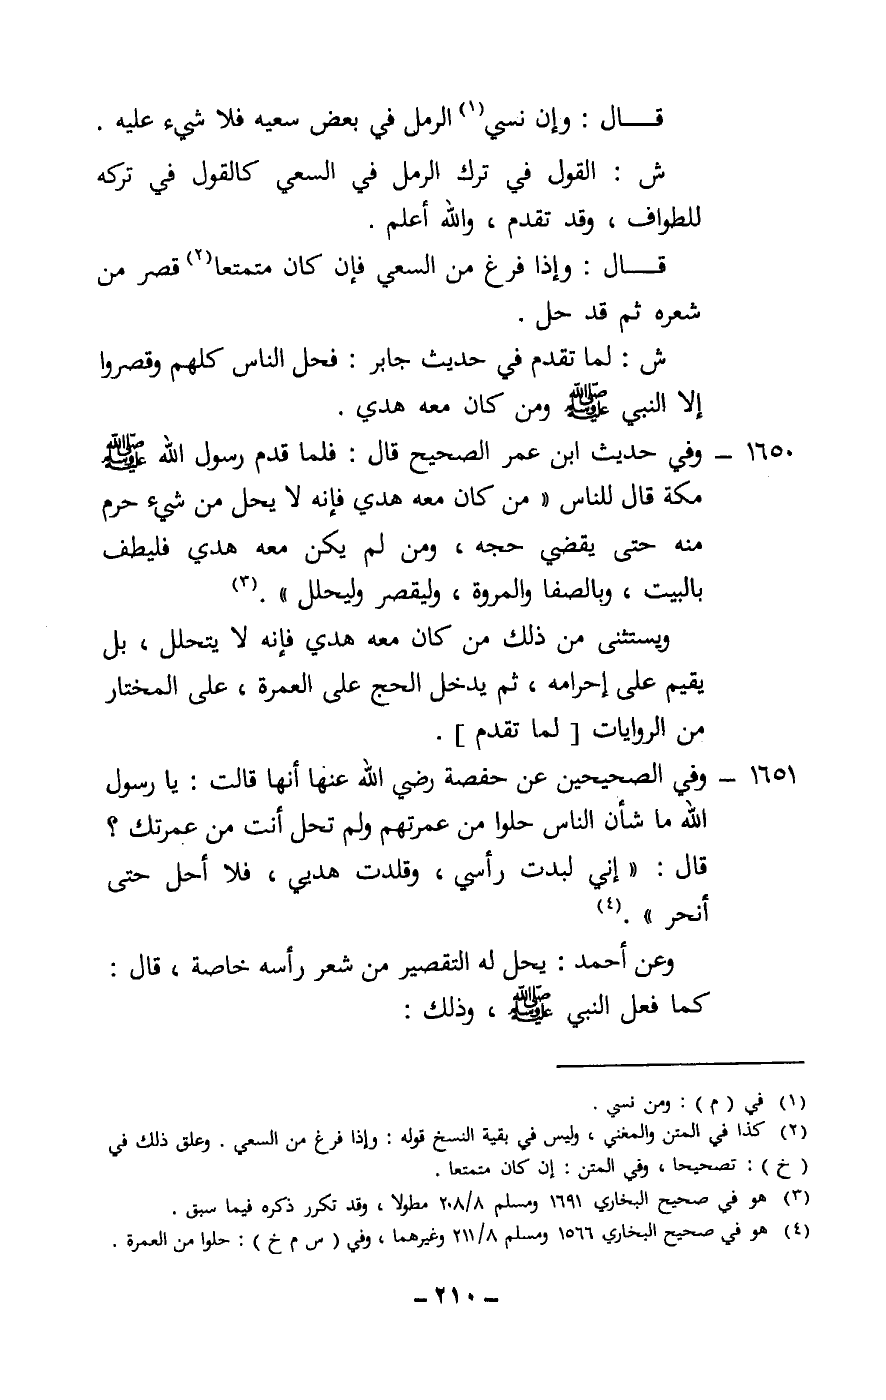 قـــال : وإن نسي(١) الرمل في بعض سعيه فلا شيء عليه .
ش : القول في ترك الرمل في السعي كالقول في تركه
للطواف ، وقد تقدم ، والله أعلم .
قـــال : وإذا فرغ من السعي فإن كان متمتعا(٢) قصر من
شعره ثم قد حل .
ش : لما تقدم في حديث جابر : فحل الناس كلهم وقصروا
إلا النبي ﷺ ومن كان معه هدي .
١٦٥٠ – وفي حديث ابن عمر الصحيح قال : فلما قدم رسول الله ﷺ
مكة قال للناس « من كان معه هدي فإنه لا يحل من شيء حرم
منه حتى يقضي حجه ، ومن لم يكن معه هدي فليطف
بالبيت ، وبالصفا والمروة ، وليقصر وليحلل » .(٣)
ويستثنى من ذلك من كان معه هدي فإنه لا يتحلل ، بل
يقيم على إحرامه ، ثم يدخل الحج على العمرة ، على المختار
من الروايات [ لما تقدم ] .
١٦٥١ – وفي الصحيحين عن حفصة رضي الله عنها أنها قالت : يا رسول
الله ما شأن الناس حلوا من عمرتهم ولم تحل أنت من عمرتك ؟
قال : « إني لبدت رأسي ، وقلدت هديي ، فلا أحل حتى
أنحر » .(٤)
وعن أحمد : يحل له التقصير من شعر رأسه خاصة ، قال :
كما فعل النبي ﷺ ، وذلك :
(١) في ( م ) : ومن نسي .
(٢) كذا في المتن والمغني ، وليس في بقية النسخ قوله : وإذا فرغ من السعي . وعلق ذلك في
( خ ) : تصحيحا ، وفي المتن : إن كان متمتعا .
(٣) هو في صحيح البخاري ١٦٩١ ومسلم ٢٠٨/٨ مطولا ، وقد تكرر ذكره فيما سبق .
(٤) هو في صحيح البخاري ١٥٦٦ ومسلم ٢١١/٨ وغيرهما ، وفي ( س م خ ) : حلوا من العمرة .
– ٢١٠ –